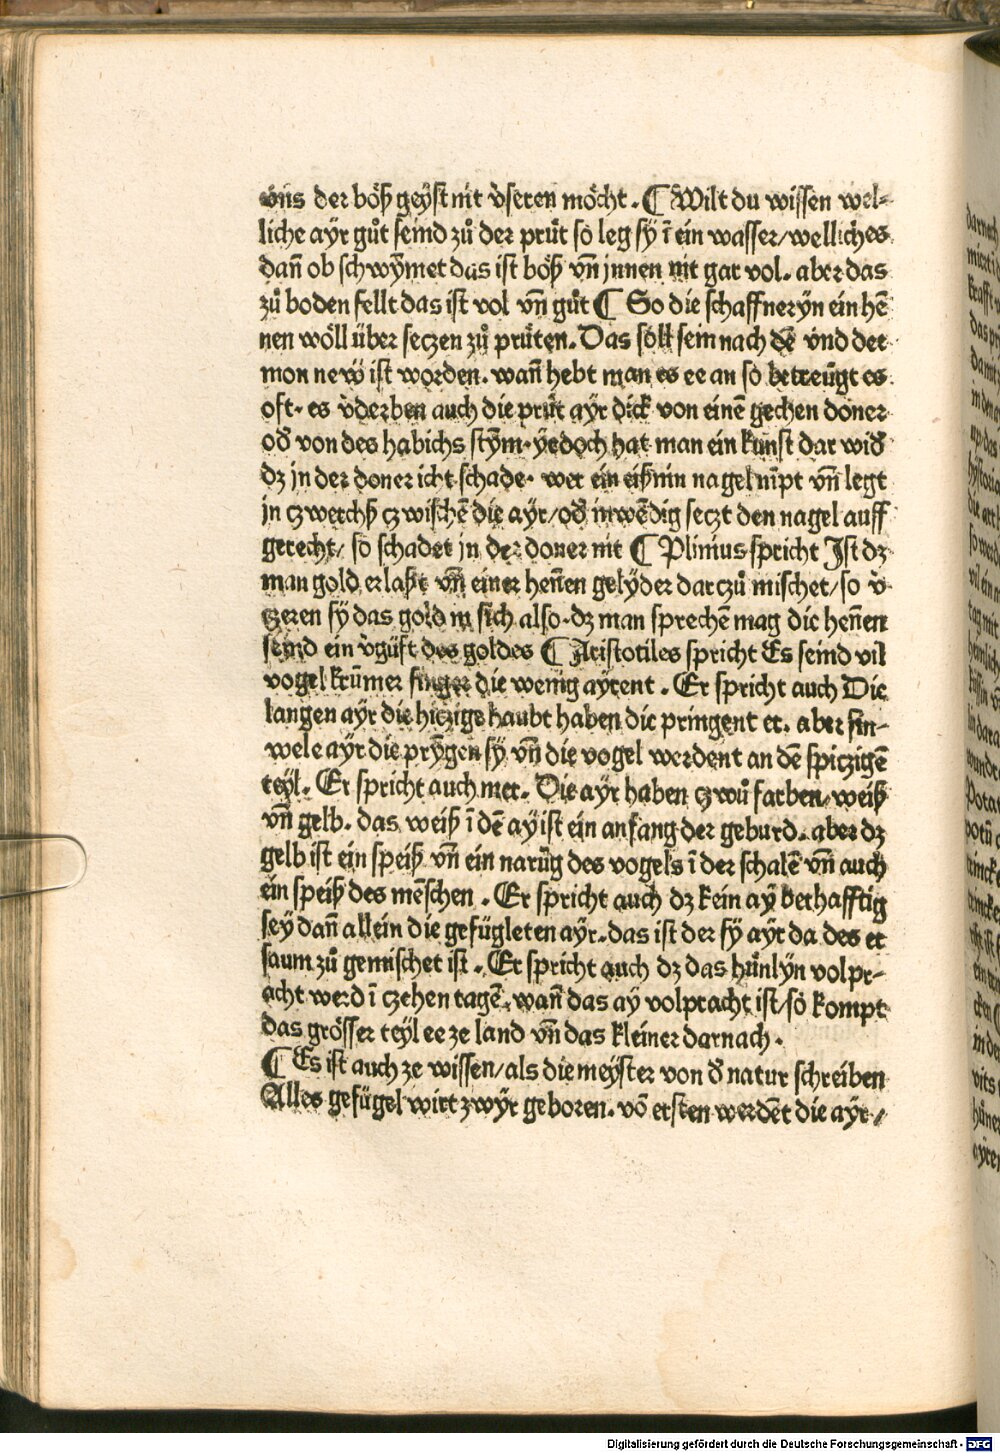 vns der böß geyst nit v̉seren möcht . ¶ Wilt du wissen wel-
liche ayr gůt seind zů der průt so leg sy ī ein wasser/welliches
dañ ob schwỹmet das ist böß vñ jnnen nit gar vol. aber das
zů boden fellt das ist vol vñ gůt ¶ So die schaffneryn ein hē
nen wöll über seczen zů průten. Das soll sein nach dē vnd der
mon new ist worden. wañ hebt man es ee an so betreügt es
oft. es v̉derben auch die průt ayr dick von einē gechen doner
oď von des habichs stym. yedoch hat man ein kunst dar wiď
dz jn der doner icht schade. wer ein eißnin nagel nīpt vñ legt
jn czwerchß czwischē die ayr/oď inwēdig seczt den nagel auff
gerecht/ so schadet jn der doner nit ¶ Plinius spricht Ist dz
man gold erlaßt vñ einer heñen gelyder darczů mischet/so v̉
czeren sy das gold in sich also. dz man sprechē mag die heñen
seind ein v̉güft des goldes ¶ Aristotiles spricht Es seind vil
vogel krūmer finger die wenig ayrent . Er spricht auch Die
langen ayr die hiczige haubt haben die pringent er. aber sin-
wele ayr die prỹgen sy vñ die vogel werdent an dē spiczigē
teyl. Er spricht auch mer. Die ayr haben czwů farben/weiß
vñ gelb. das weiß ī dē ay ist ein anfang der geburd. aber dz
gelb ist ein speiß vñ ein narūg des vogels ī der schalē vñ auch
ein speiß des mēschen . Er spricht auch dz kein ay berhafftig
sey dañ allein die gefügleten ayr. das ist der sy ayr da des er
saum zů gemischet ist . Er spricht auch dz das hůnlyn volpr-
acht werd ī czehen tagē. wañ das ay volpracht ist/so kompt
das grösser teyl ee ze land vñ das kleiner darnach .
¶ Es ist auch ze wissen/als die meyster von ď natur schreiben
Alles gefügel wirt zwyr geboren. vō ersten werdēt die ayr/
Digitalisierung gefördert durch die Deutsche Forschungsgemeinschaft - DFG